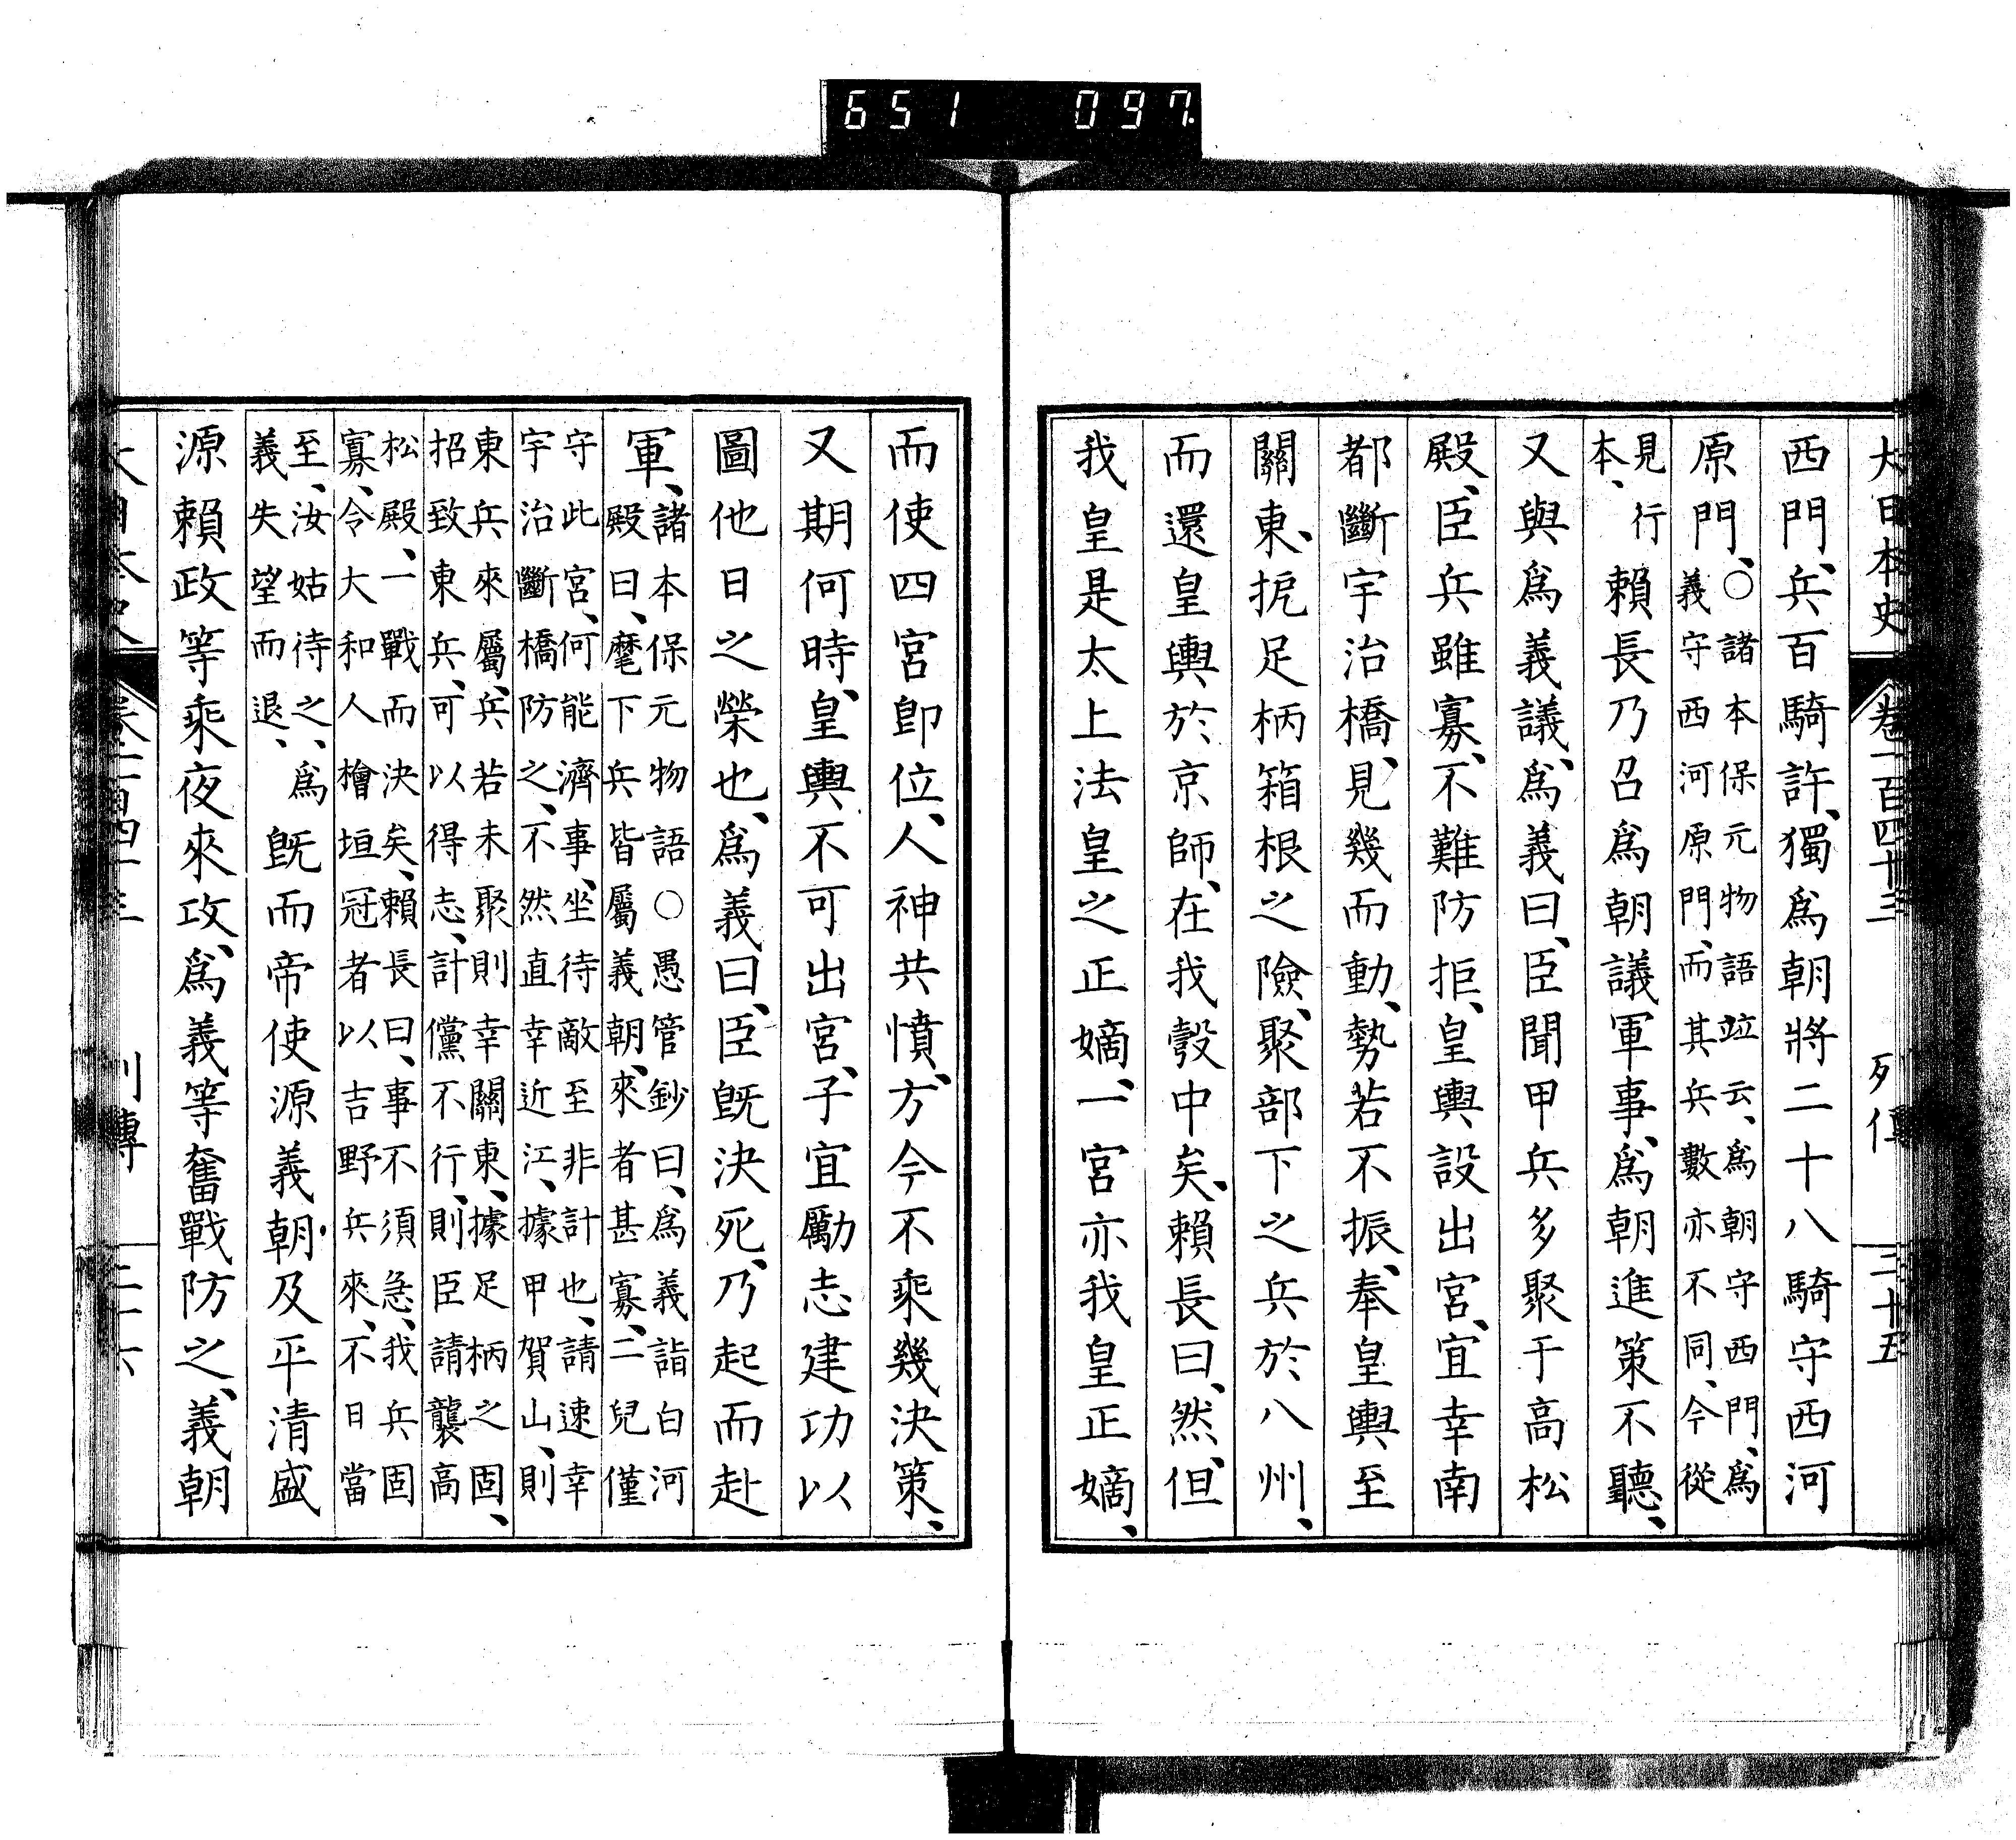 651 097
大日本史 卷一百四十三 列傳 三十五
西門、兵百騎許、獨爲朝將二十八騎守西河
原門、○諸本保元物語竝云、爲朝守西門、爲
義守西河原門、而其兵數亦不同、今從
見行
本、
賴長乃召爲朝議軍事、爲朝進策不聽、
又與爲義議、爲義曰、臣聞甲兵多聚于高松
殿、臣兵雖寡、不難防拒、皇輿設出宮、宜幸南
都斷宇治橋、見幾而動、勢若不振、奉皇輿至
關東、扼足柄箱根之險、聚部下之兵於八州、
而還皇輿於京師、在我彀中矣、賴長曰、然、但
我皇是太上法皇之正嫡、一宮亦我皇正嫡、
而使四宮卽位、人神共憤、方今不乘幾決策、
又期何時、皇輿不可出宮、子宜勵志建功以
圖他日之榮也、爲義曰、臣旣決死、乃起而赴
軍、
諸本保元物語○愚管鈔曰、爲義詣白河
殿曰、麾下兵皆屬義朝、來者甚寡、二兒僅
守此宮、何能濟事、坐待敵至非計也、請速幸
宇治斷橋防之、不然直幸近江、據甲賀山、則
東兵來屬、兵若未聚則幸關東、據足柄之固、
招致東兵、可以得志、計儻不行、則臣請襲高
松殿、一戰而決矣、賴長曰、事不須急、我兵固
寡、令大和人檜垣冠者以吉野兵來、不日當
至、汝姑待之、爲
義失望而退、
旣而帝使源義朝及平清盛
源賴政等乘夜來攻、爲義等奮戰防之、義朝
卷一百四十三 列傳